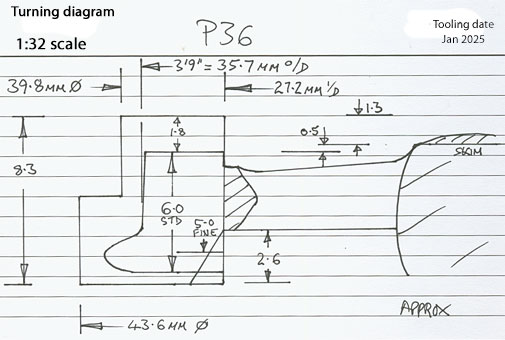 Turning diagram
1:32 scale
P36
Tooling date
Jan 2025
3'9" = 35.7 MM O/D
39.8MM Ø
27.2 MM I/D
1.3
1.8
0.5
SKIM
8.3
6.0
STD
5.0
FINE
2.6
APPROX
43.6 MM Ø